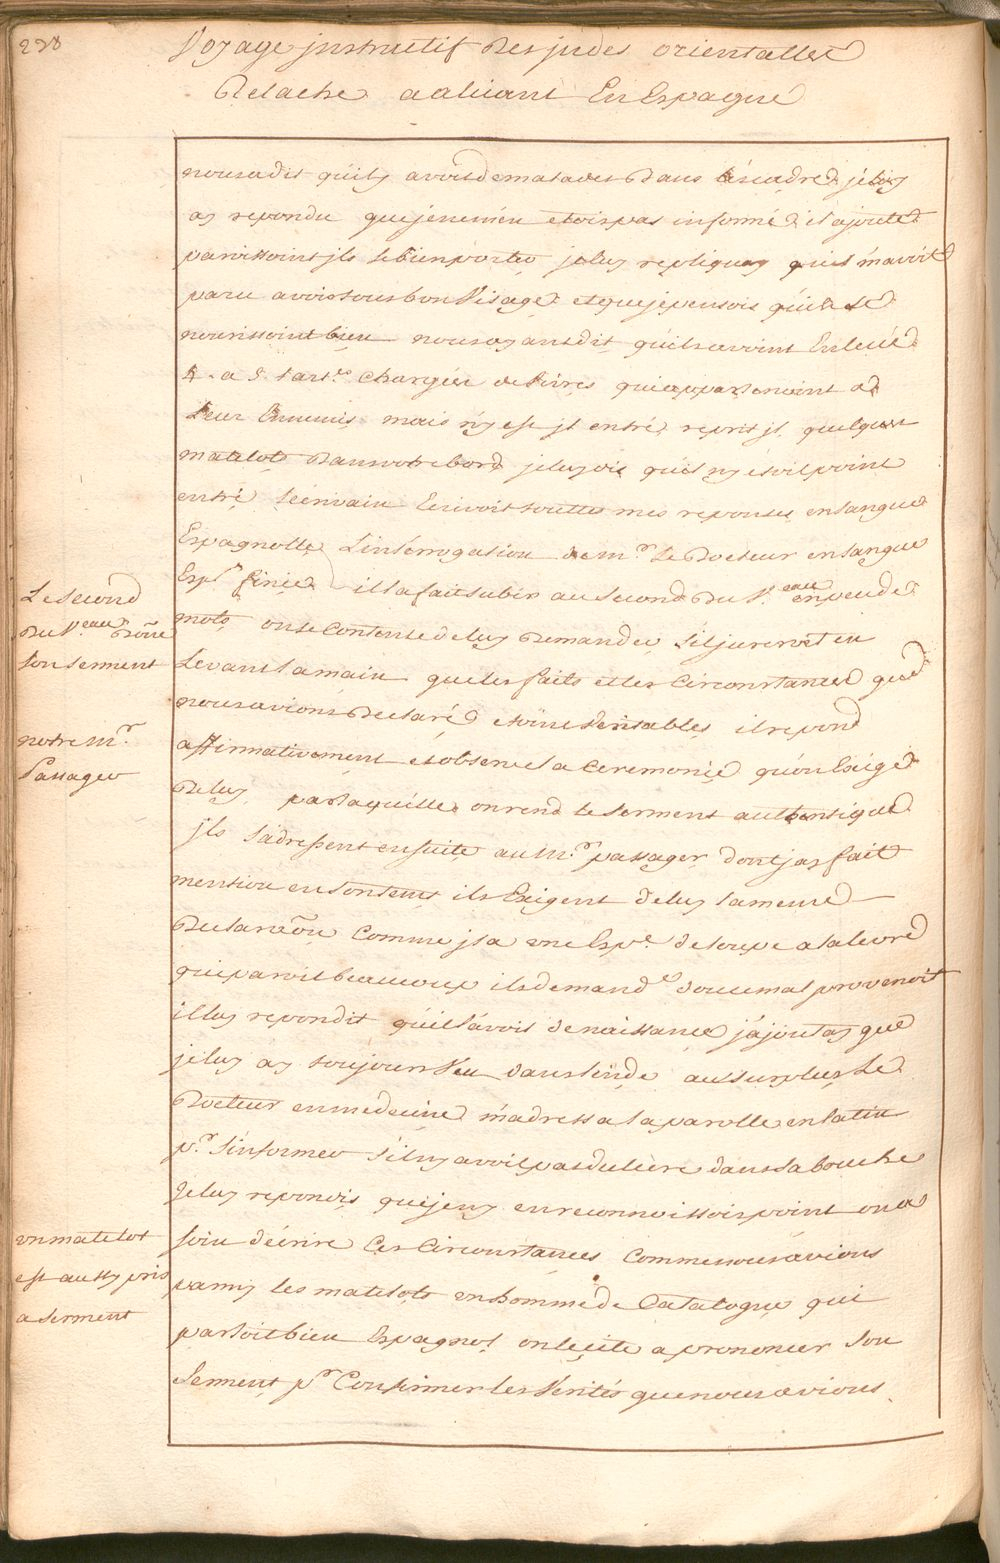 238
Voyage jnstructif Des jndes orientalles
Relache a alicant En Espagne
nous a dit qu'ils avoit de malades Dans l'éscadre, je luy
ay repondu que je ne m'en etois pas informé, il ajoute
paroissoint jls se bien porter je luy repliquay qu'il m'avoit
paru avoir tous bon Visage et que je pensois qu'ils se
nourissoint bien nous ayant dit qu'ils avoint Enlevé
4. a 5. tart.es chargées de vivres qui appartenoint a
Leur Ennemis mais n'y est jl entré, reprit jl, quelques
matelots Dans votre bord je luy dis qu'il n'y étoit point
entré, L'écrivain Ecrivoit touttes mes reponses en langue
Espagnolle, L'interrogation de m.r Le Docteur en langue
Esp.e finie, il l'a fait subir au Second Du V.eau en peu de
mots, on se contente de luy Demander, S'il jureroit en
Levant la main que les faits et les Circonstances que
nous avions Declaré, etoint veritables, il repond
affirmativement et observe la Ceremonie qu'on Exige
De luy, par laquelle on rend le Serment authentique
jls s'adressent ensuite au M.r passager, dont j'ay fait
mention en son tems ils Exigent de luy la meme
Declarãõn Comme jl a une Esp.e de loupe a la levre
qui paroit beaucoup ils demand.e d'ou ce mal provenoit
il luy repondit qu'il l'avoit de naissance, j'ajoutay que
je luy ay toujours Veu dans l'inde au surplus Le
Docteur en medecine m'adressa la parolle en latin
p.r s'informer s'il n'y avoit pas d'ulcere dans la bouche
Je luy repondis que je n'y en reconnoissois point on a
soin d'écrire Ces Circonstances Comme nous avions
parmy les matelots un homme de Catalogne qui
parloit bien Espagnol on le cite a prononcer Son
Serment p.r Confirmer les Verités que nous avions
Le Second
Du V.eau Dõne
son serment
notre M.r
Passager
un matelot
est aussy pris
a serment